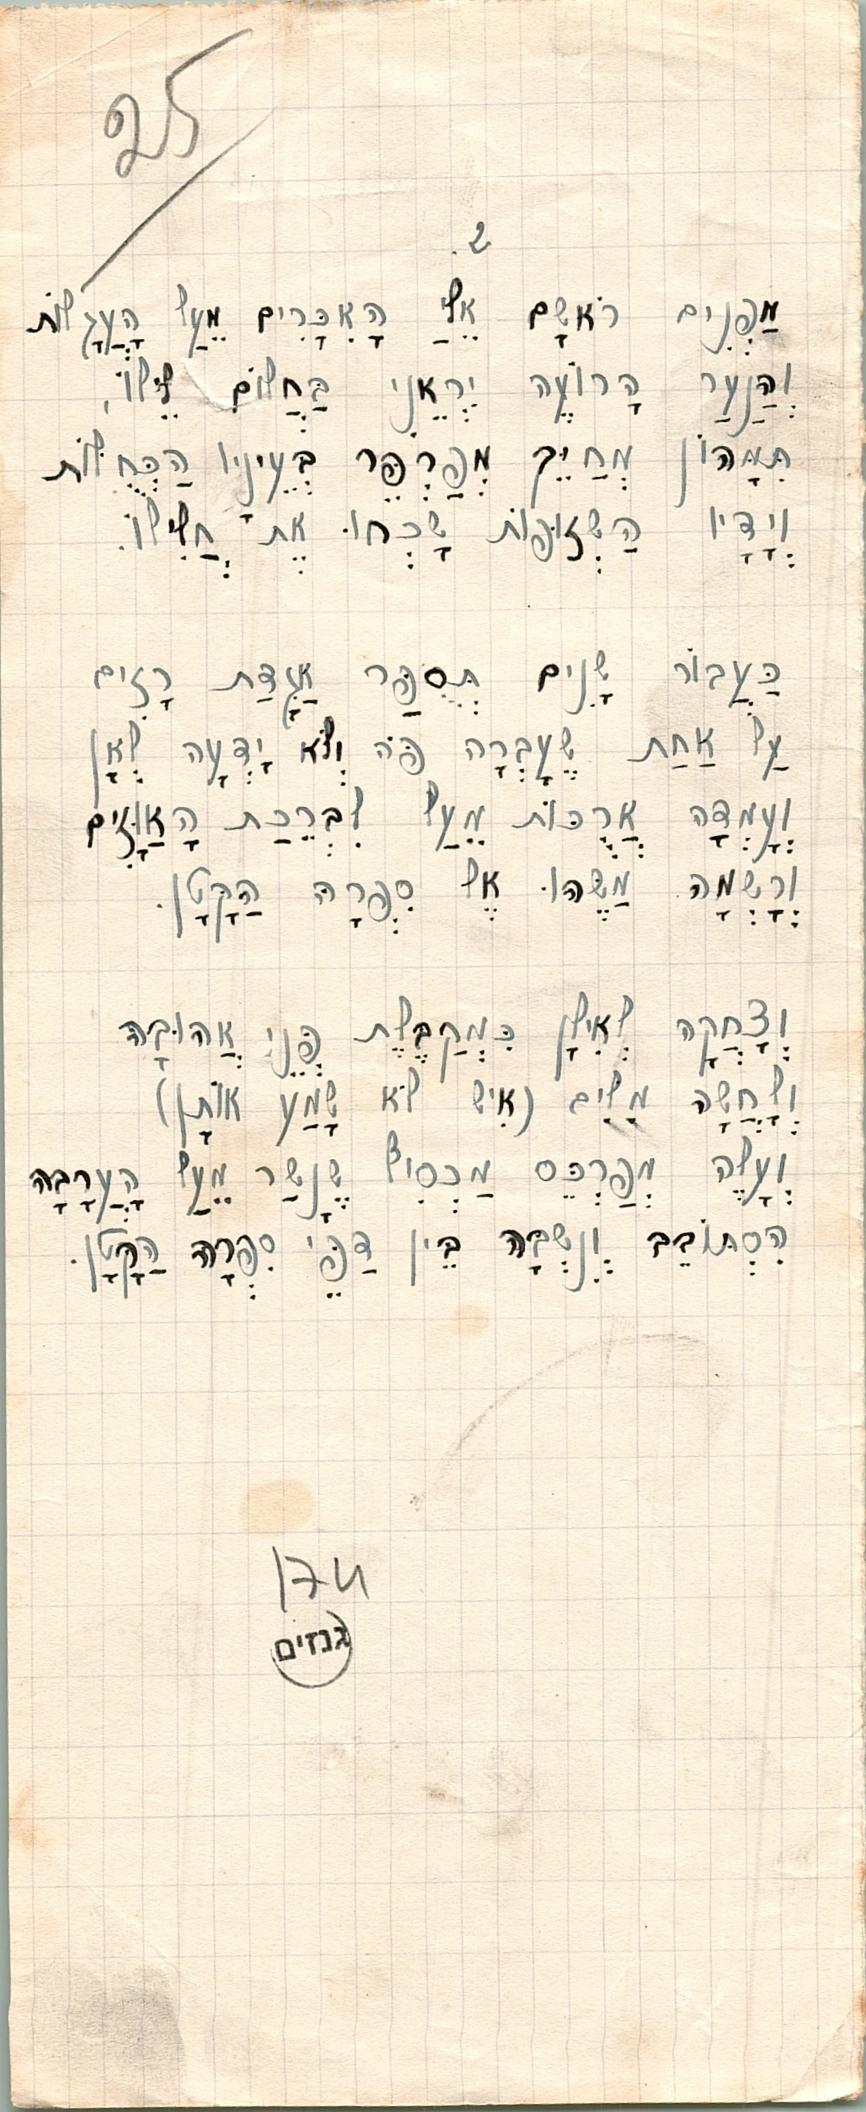 25
ש.
מַפְנִים רֹאשָׁם אֵלַי הָאִכָּרִים מֵעַל הָעֲגָלוֹת
וְהַנַּעַר הָרוֹעֶה יִרְאֵנִי בַּחֲלוֹם לֵילוֹ,
תִּמָּהוֹן מְחַיֵּךְ מְפַרְפֵּר בְּעֵינָיו הַכְּחֻלּוֹת
וְיָדָיו הַשְּׁזוּפוֹת שָׁכְחוּ אֶת חֲלִילוֹ.
כַּעֲבוֹר שָׁנִים תְּסֻפַּר אַגָּדַת רָזִים
עַל אַחַת שֶׁעָבְרָה פֹּה וְלֹא יָדְעָה לְאָן
וְעָמְדָה אֲרֻכּוֹת מֵעַל לִבְרֵכַת הָאַוָּזִים
וְרָשְׁמָה מַשֶּׁהוּ אֶל סִפְרָהּ הַקָּטָן.
וְצָחֲקָה לְאִילָן כִּמְקַבֶּלֶת פְּנֵי אֲהוּבָהּ
וְלָחֲשָׁה מִלִּים (אִישׁ לֹא שָׁמַע אוֹתָן)
וְעָלֶה מְפַרְכֵּס מַכְסִיף שֶׁנָּשַׁר מֵעַל הָעֲרָבָה
הִסְתּוֹבֵב וְנִשְׁבָּה בֵּין דַּפֵּי סִפְרָהּ הַקָּטָן.
174
גנזים